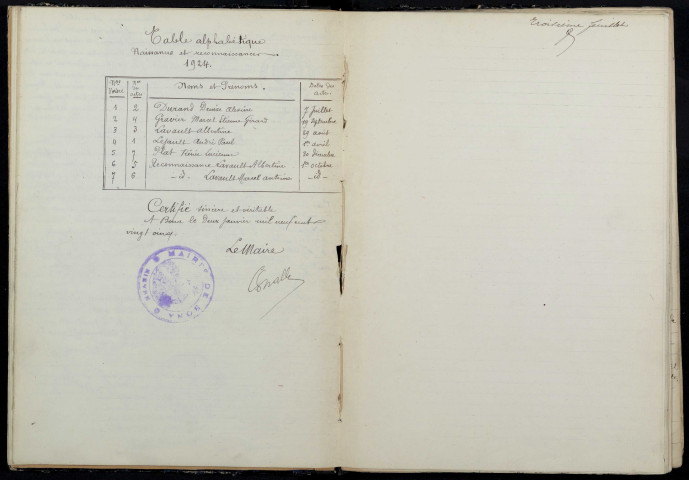 Table alphabétique
Naissances et reconnaissances
1924.
Nos d'ordre Nos des actes Noms et Prénoms. Dates des actes
1 2 Durand Denise 7 Juillet
2 4 Gravier Marcel Etienne Gérard 19 Septembre
3 3 Lavault Albertine 29 août
4 1 Lesault André Paul 1er avril
5 7 Plat Renée Lucienne 30 décembre
6 5 Reconnaissance Lavault Albertine 1er octobre
7 6 -id- Lavault Marcel Antoine -id-
Certifié sincère et véritable
A Bona le deux janvier mil neuf cent
vingt cinq.
Le Maire
MAIRIE DE BONA
troisième feuillet